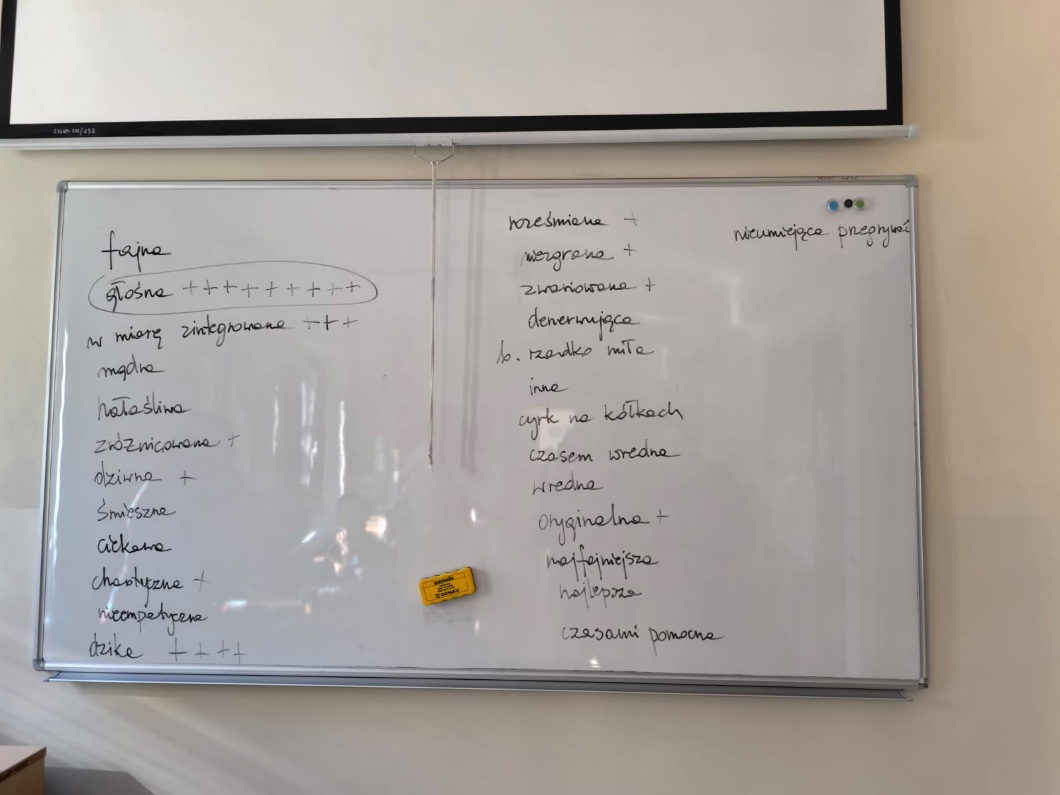 fajna
głośna + + + + + + + + +
w miarę zintegrowana + + +
mądra
hałaśliwa
zróżnicowana +
dziwna +
śmieszna
ciekawa
chaotyczna +
nieempatyczna
dzika + + + +
roześmiana +
niezgrana +
zwariowana +
denerwująca
b. rzadko miła
inna
cyrk na kółkach
czasem wredna
wredna
oryginalna +
najfajniejsza
najlepsza
czasami pomocna
nieumiejąca przegrywać
DONAU